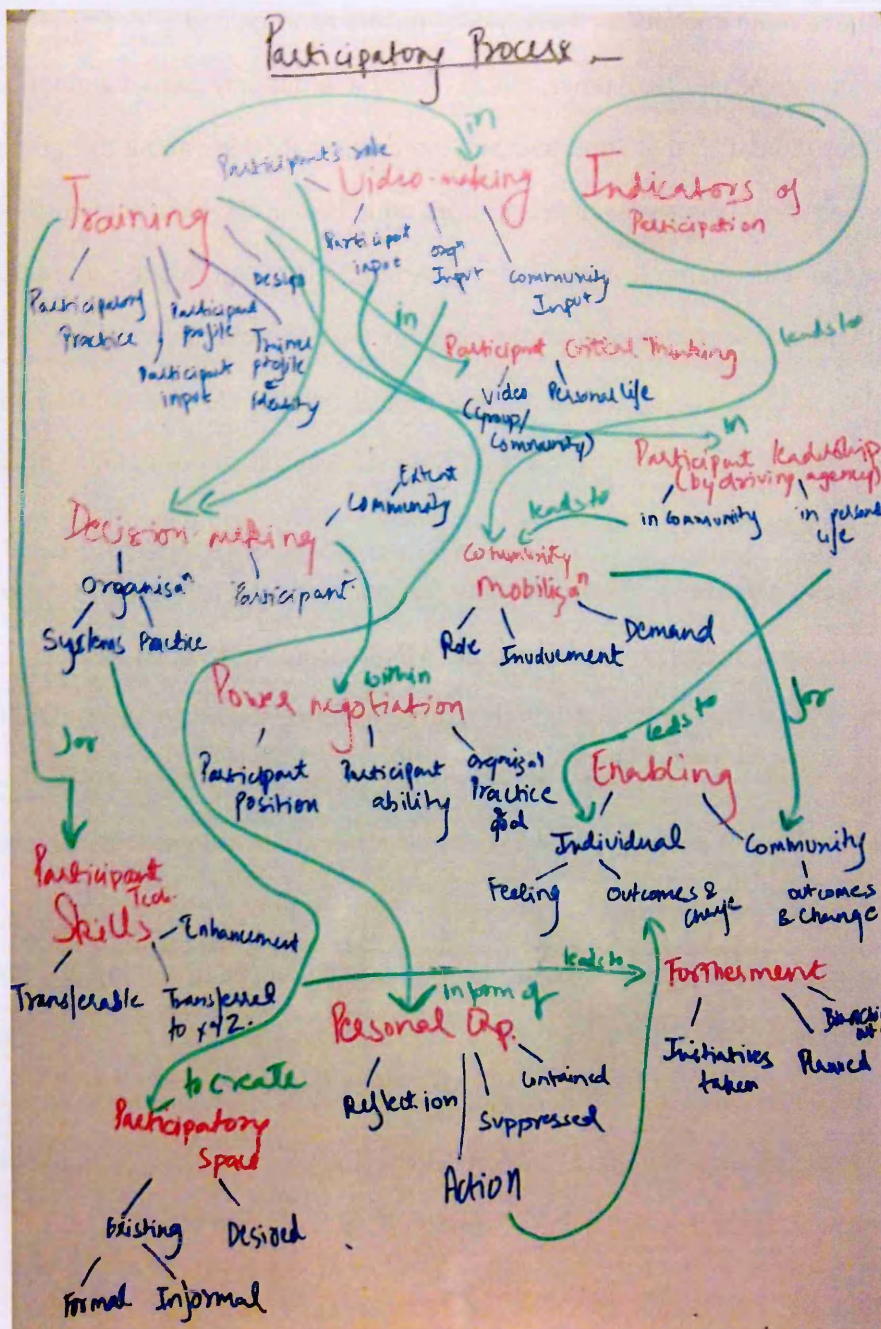 Participatory Process
in
Participant's role
Video-making
Indicators of
Participation
Training
Participant
input
Orgⁿ
Input
Community
Input
Participatory
Practice
Participant
profile
Design
Participant
input
Trainer
profile
Identity
in
leads to
Participant Critical Thinking
Video
(Group/
Community)
Personal life
in
Participant leadership
(by driving agency)
in community
in personal
life
Extent
Community
leads to
Decision making
Organisaⁿ
Participant
Systems
Practice
Community
Mobilisaⁿ
Role
Involvement
Demand
within
Power negotiation
Participant
position
Participant
ability
Practice
for
for
leads to
Enabling
Individual
Community
Feeling
Outcomes &
Change
outcomes
& Change
Participant
Tech.
Skills
Enhancement
Transferable
Transferral
to
leads to
Furtherment
Initiatives
taken
Planned
in form of
Personal Exp.
Reflection
Suppressed
Contained
Action
to create
Participatory
Space
Existing
Desired
Formal
Informal